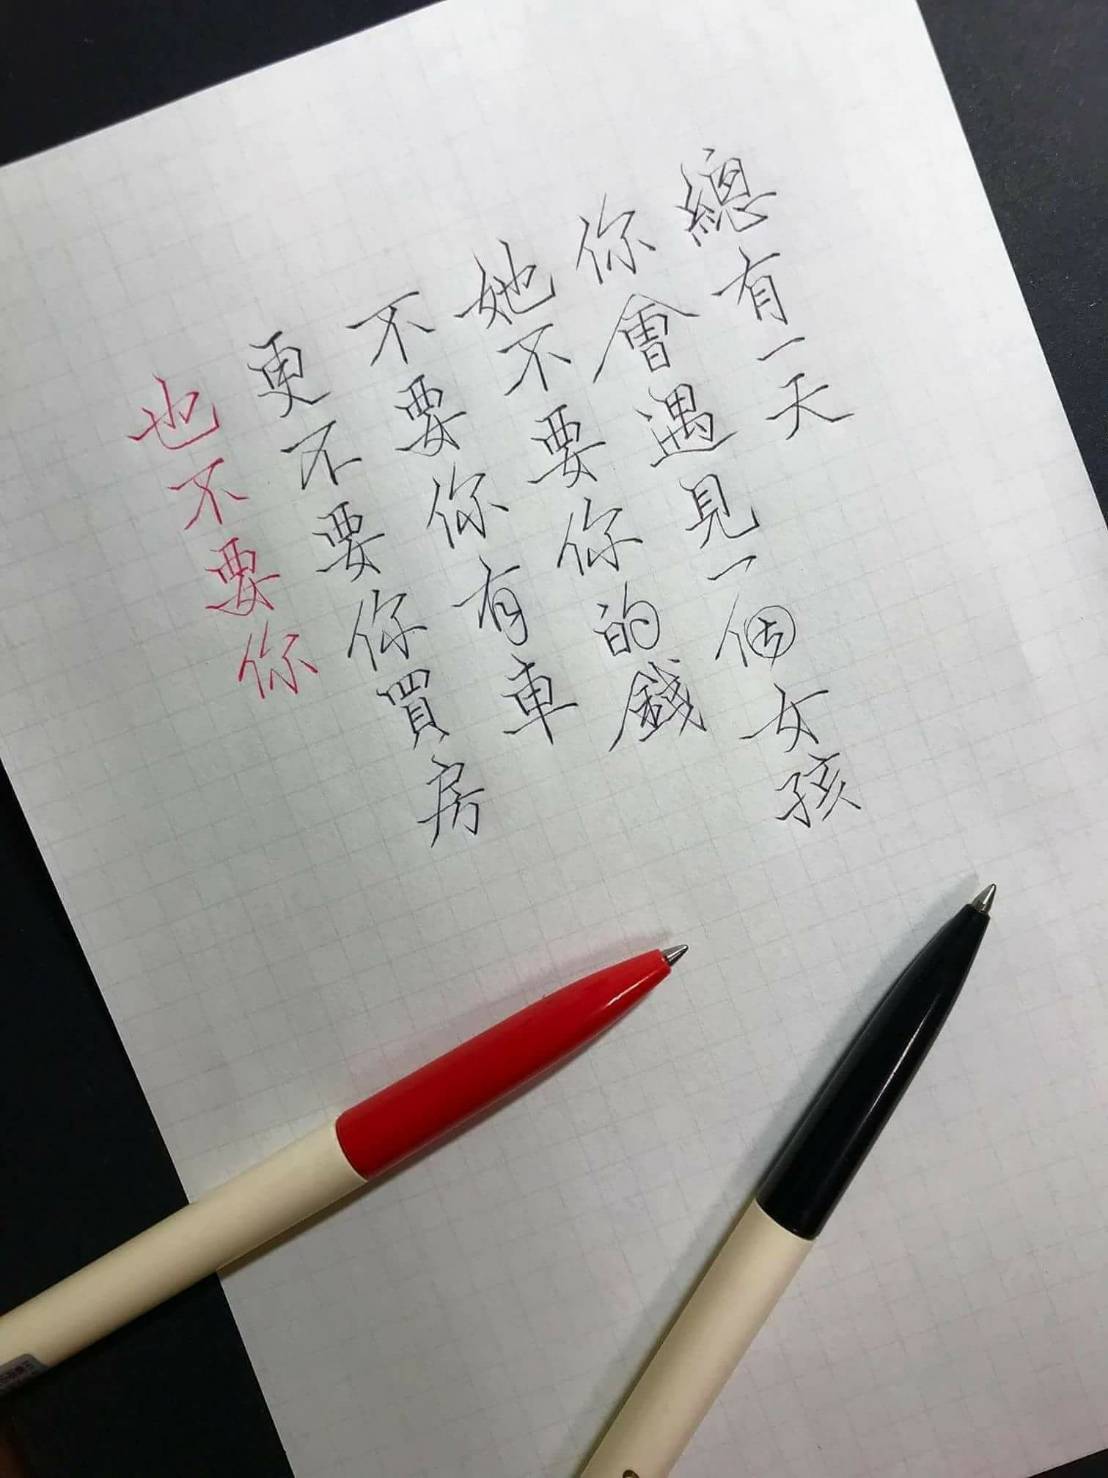 總有一天
你會遇見一個女孩
她不要你的錢
不要你有車
更不要你買房
也不要你